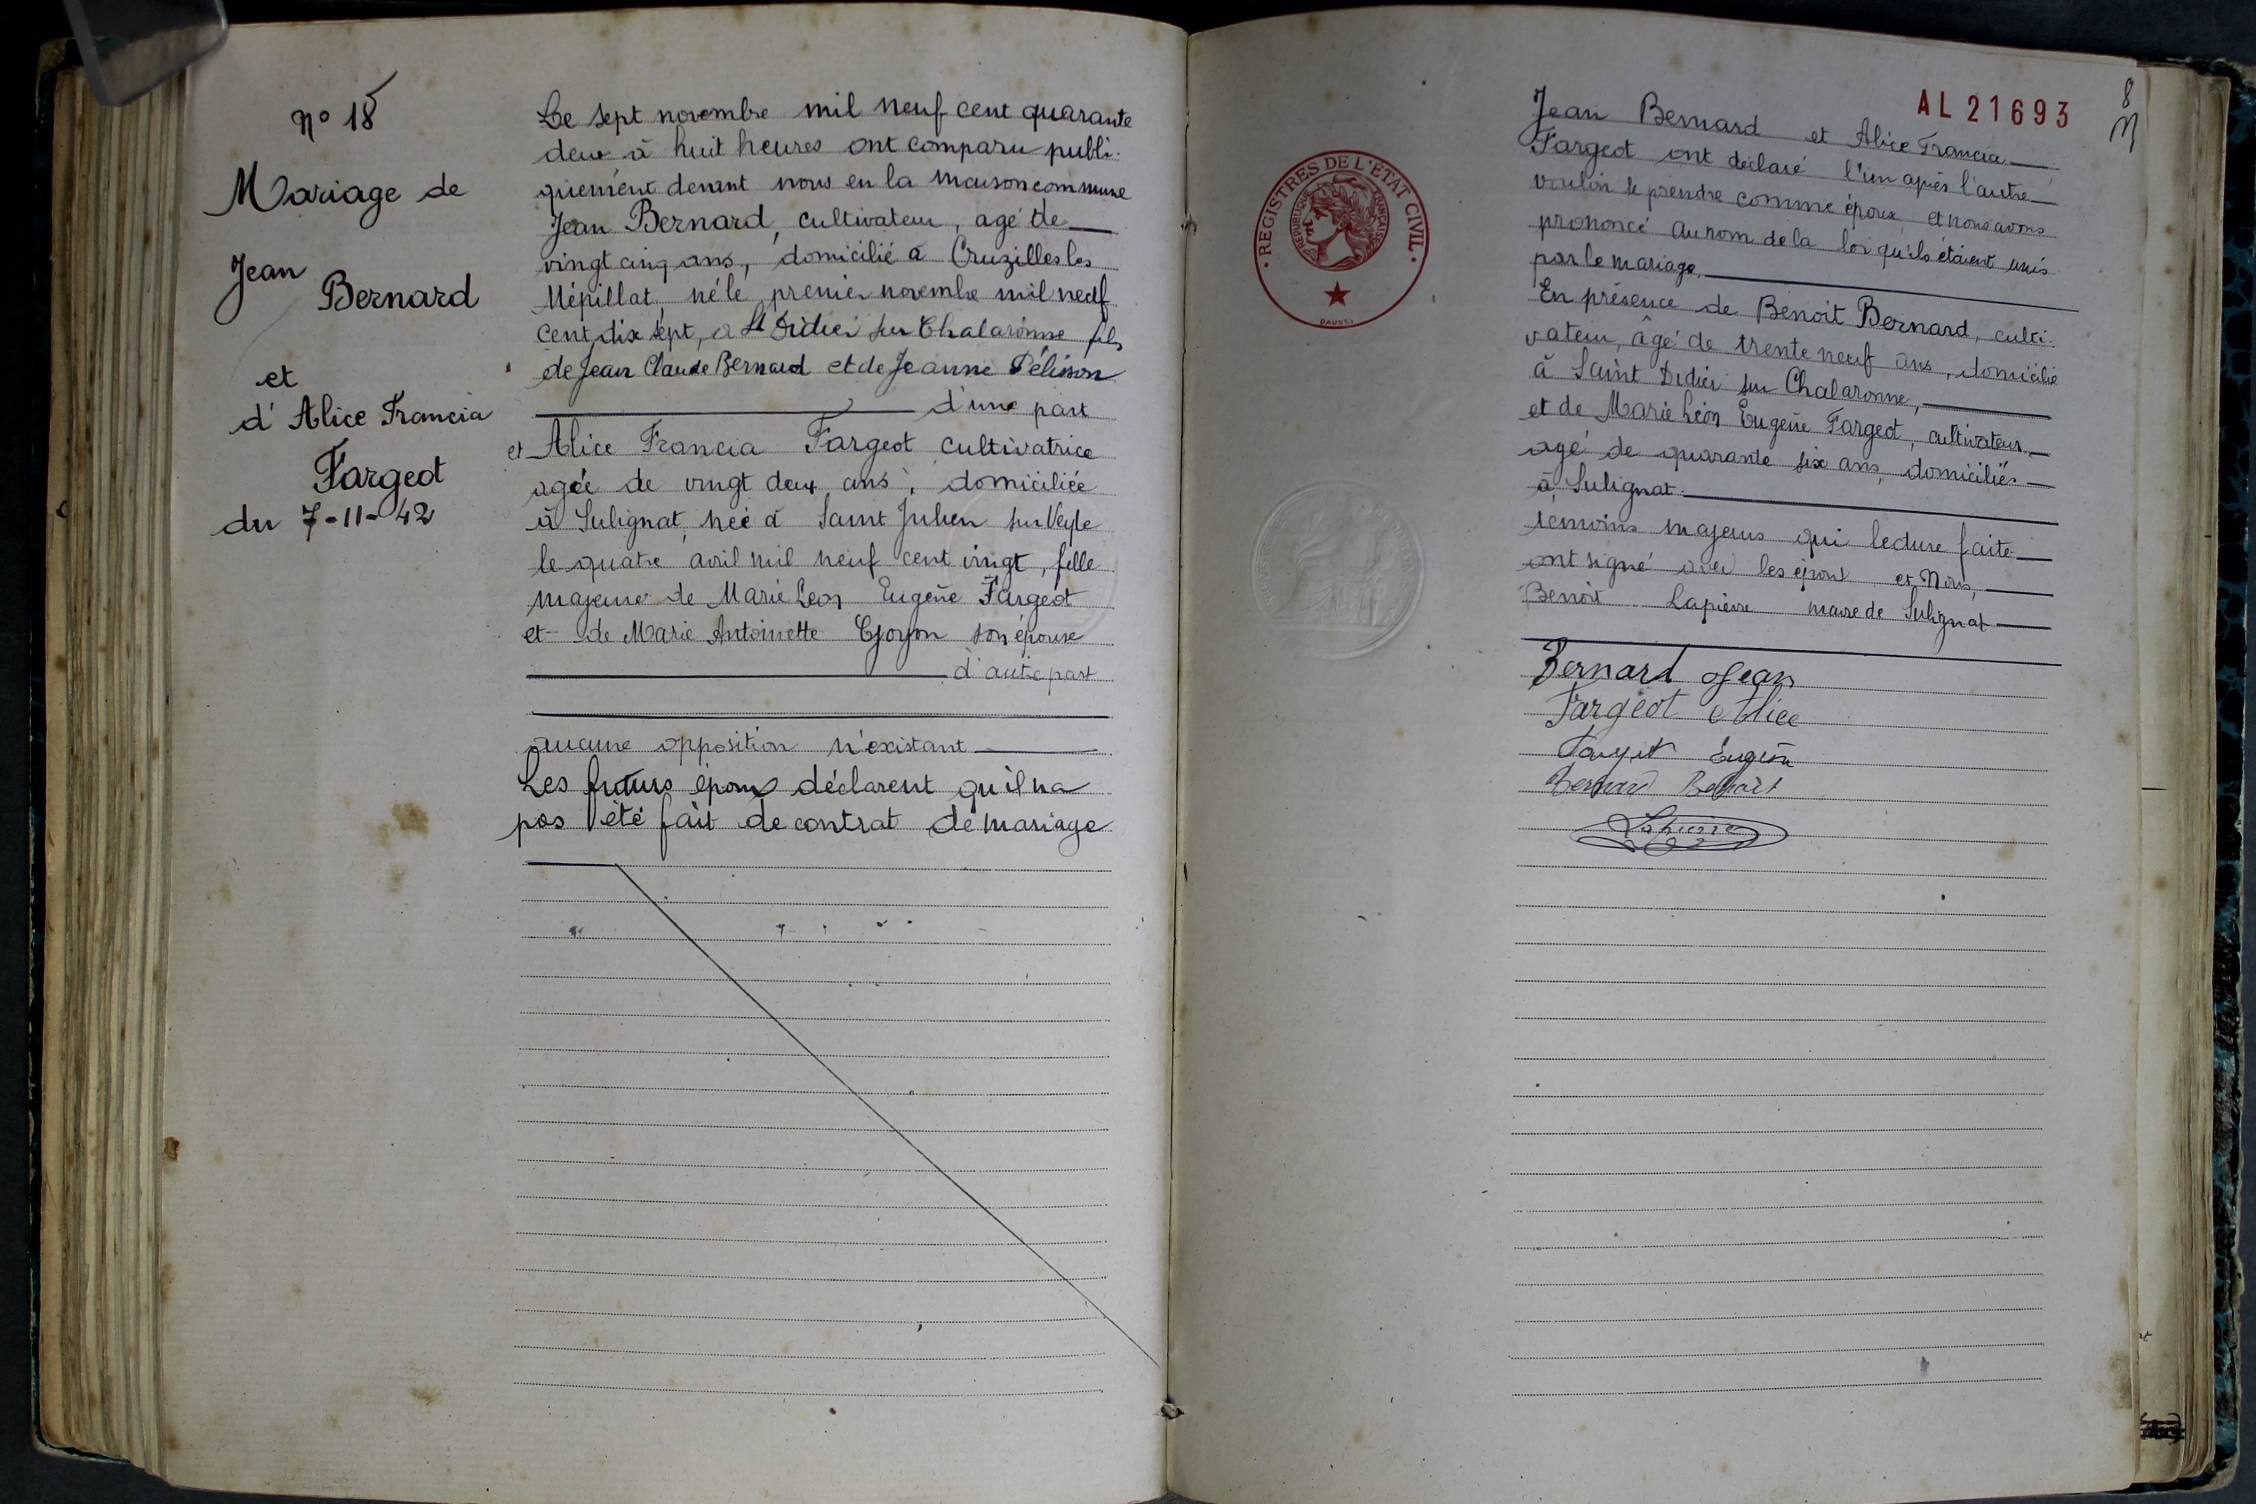 N° 18
Mariage de
Jean
Bernard
et
d'Alice Francia
Fargeot
du 7-11-42
Le sept novembre mil neuf cent quarante
deux à huit heures ont comparu publi-
quement devant nous en la maison commune
Jean Bernard, cultivateur, agé de
vingt cinq ans, domicilié à Cruzilles les
Mépillat, né le premier novembre mil neuf
cent dix sept, à St Didier sur Chalaronne fils
de Jean Claude Bernard et de Jeanne Pélisson
d'une part
et Alice Francia Fargeot cultivatrice
agée de vingt deux ans, domiciliée
à Sulignat, née à Saint Julien sur Veyle
le quatre avril mil neuf cent vingt, fille
majeure de Marie Léon Eugène Fargeot
et de Marie Antoinette Goyon son épouse
d'autre part
aucune opposition n'existant
Les futurs époux déclarent qu'il n'a
pas été fait de contrat de mariage
AL 21693
8
REGISTRES DE L'ÉTAT CIVIL
RÉPUBLIQUE FRANÇAISE
Jean Bernard et Alice Francia
Fargeot ont déclaré l'un après l'autre
vouloir se prendre comme époux et nous avons
prononcé au nom de la loi qu'ils étaient unis
par le mariage.
En présence de Benoit Bernard, culti-
vateur, âgé de trente neuf ans, domicilié
à Saint Didier sur Chalaronne,
et de Marie Léon Eugène Fargeot, cultivateur
agé de quarante six ans, domiciliés
à Sulignat.
témoins majeurs qui lecture faite
ont signé avec les époux et Nous,
Benoît Lapierre maire de Sulignat
Bernard Jean
Fargeot Alice
Fargeot Eugène
Bernard Benoit
Lapierre